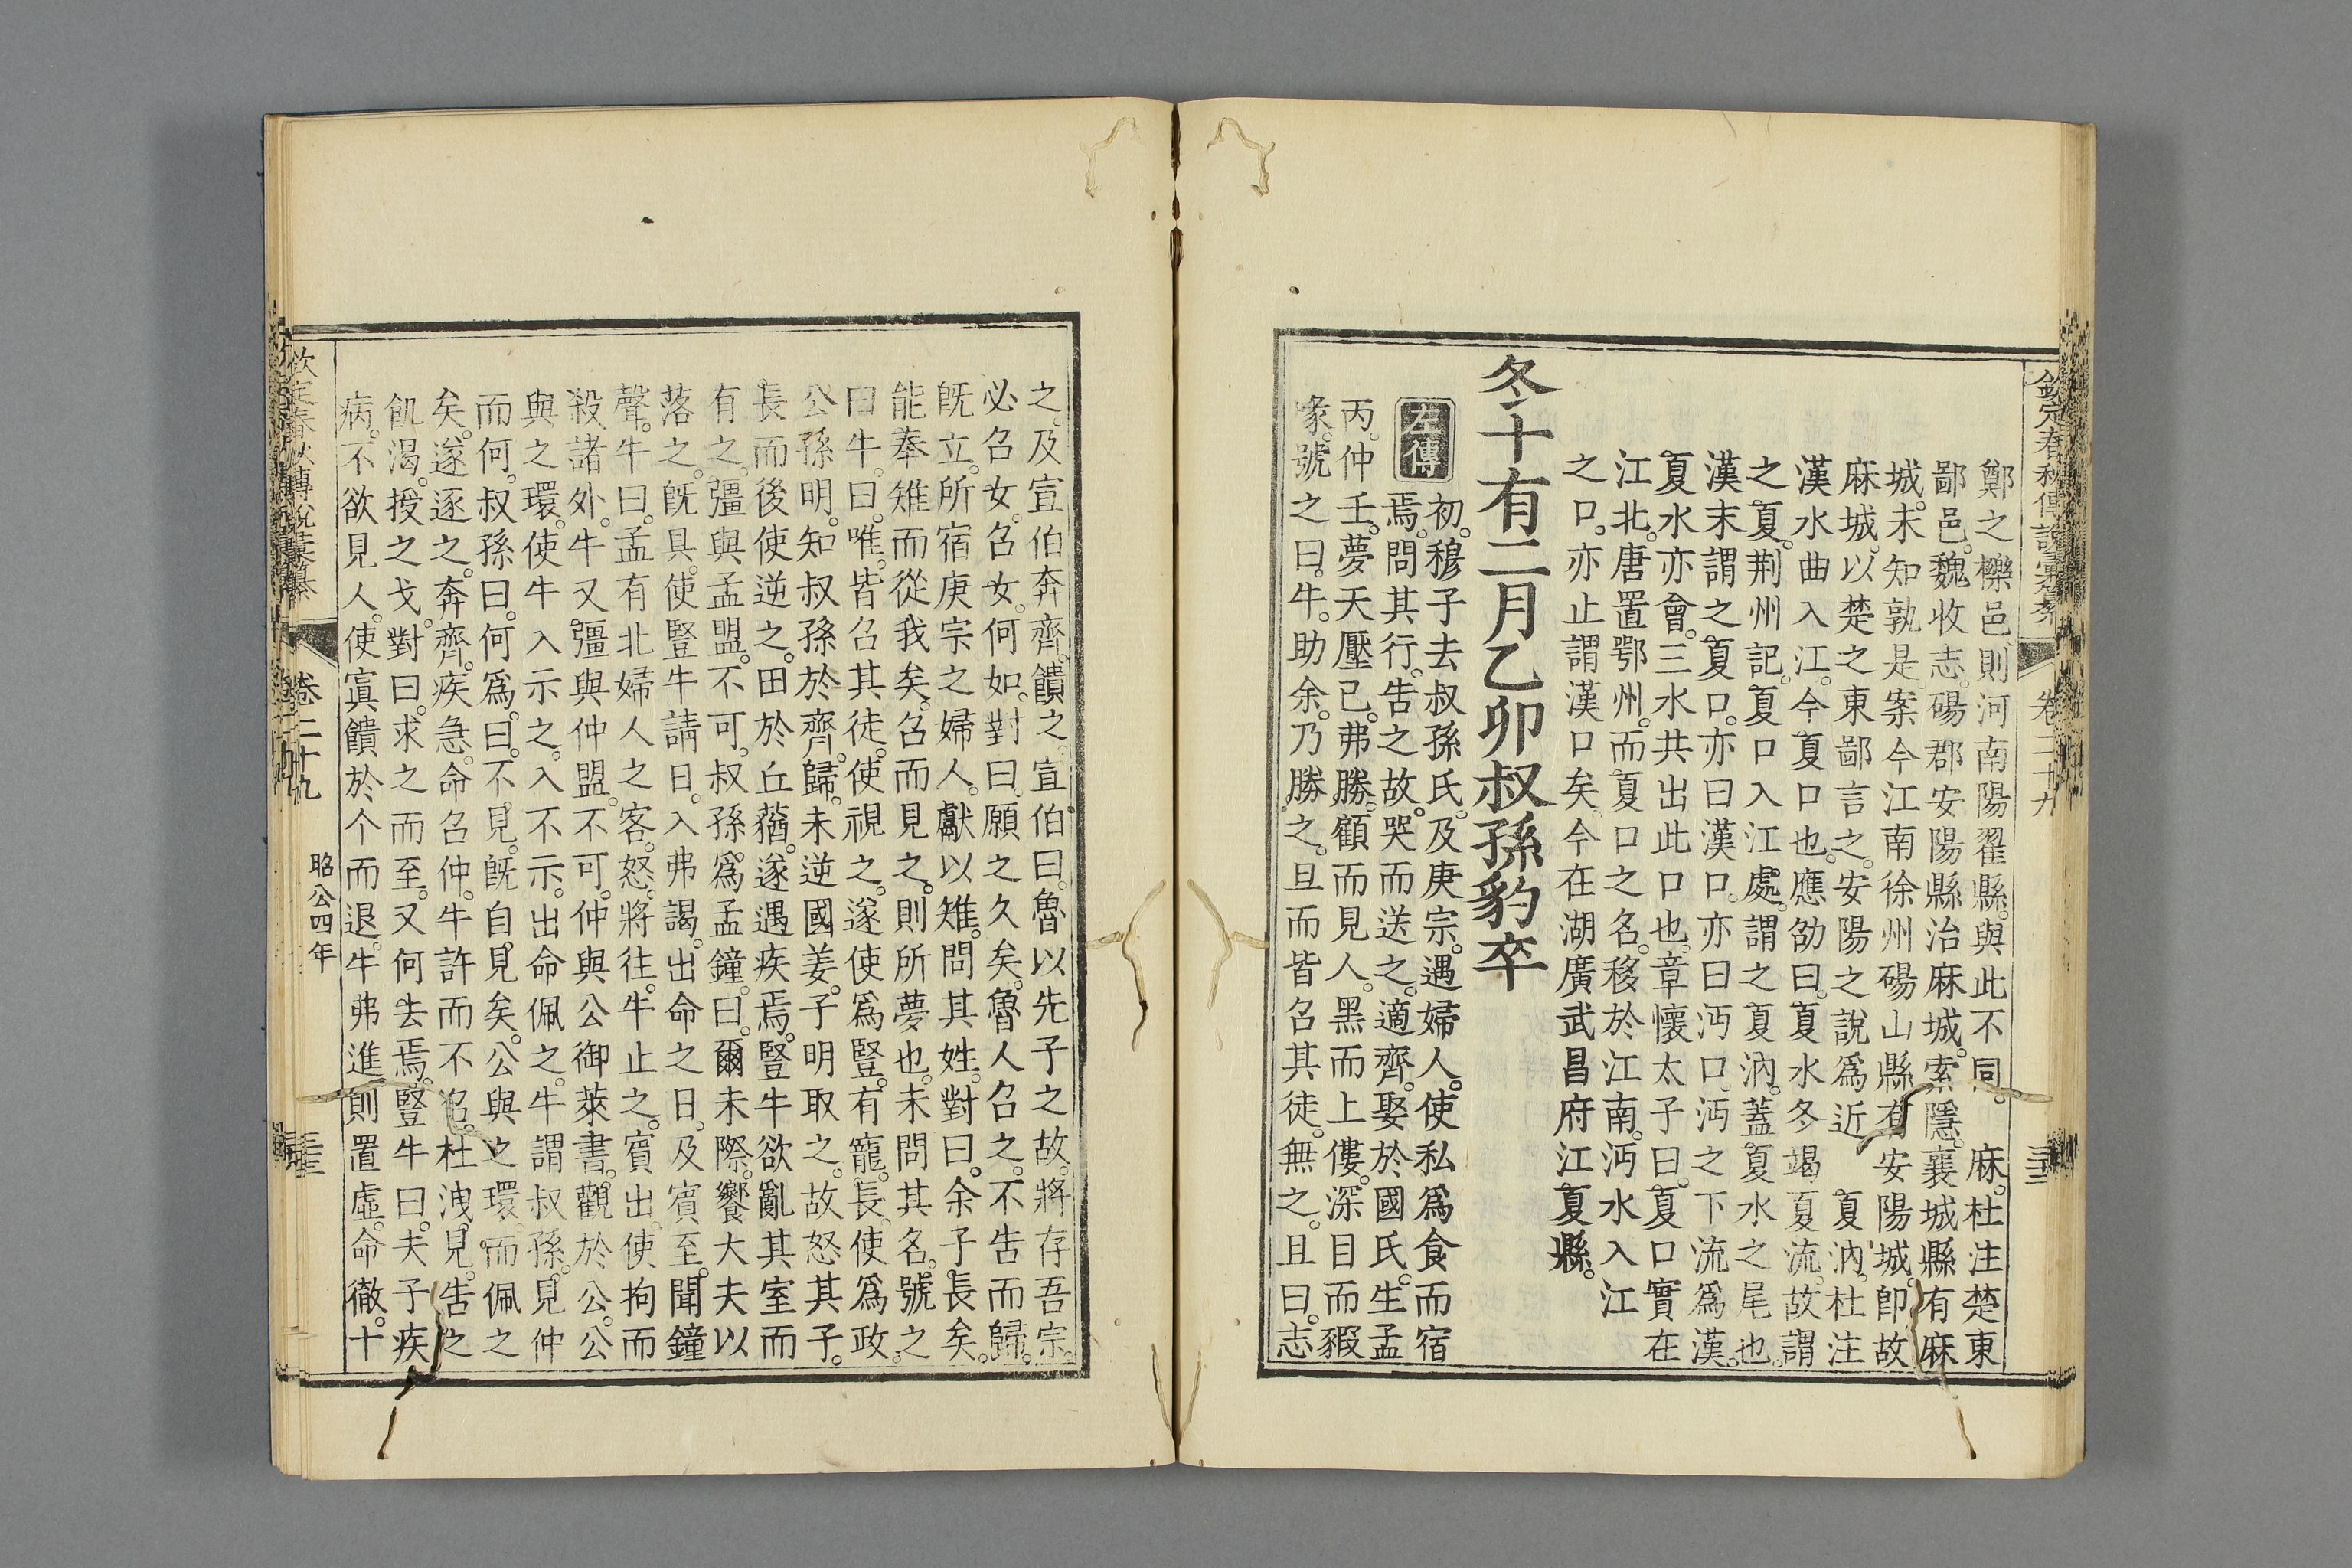 欽定春秋傳說彙纂 卷二十九 三十三
鄭之櫟邑。則河南陽翟縣。與此不同。 麻。杜注楚東
鄙邑。魏收志。碭郡安陽縣治麻城。索隱。襄城縣有麻
城。未知孰是。案今江南徐州碭山縣有安陽城。卽故
麻城。以楚之東鄙言之。安陽之說爲近。 夏汭。杜注
漢水曲入江。今夏口也。應劭曰。夏水冬竭夏流。故謂
之夏。荆州記。夏口入江處。謂之夏汭。蓋夏水之尾也。
漢末謂之夏口。亦曰漢口。亦曰沔口。沔之下流爲漢。
夏水亦會。三水共出此口也。章懷太子曰。夏口實在
江北。唐置鄂州。而夏口之名。移於江南。沔水入江
之口。亦止謂漢口矣。今在湖廣武昌府江夏縣。
冬十有二月乙卯叔孫豹卒
左傳
初。穆子去叔孫氏。及庚宗。遇婦人。使私爲食而宿
焉。問其行。告之故。哭而送之。適齊。娶於國氏。生孟
丙。仲壬。夢天壓已。弗勝。顧而見人。黑而上僂。深目而豭
喙。號之曰。牛。助余。乃勝之。旦而皆召其徒。無之。且曰。志
之。及宣伯奔齊。饋之。宣伯曰。魯以先子之故。將存吾宗。
必召女。召女。何如。對曰。願之久矣。魯人召之。不告而歸。
旣立。所宿庚宗之婦人。獻以雉。問其姓。對曰。余子。長矣。
能奉雉而從我矣。召而見之。則所夢也。未問其名。號之
曰牛。曰。唯。皆召其徒。使視之。遂使爲豎。有寵。長。使爲政。
公孫明。知叔孫於齊。歸。未逆國姜。子明取之。故怒其子。
長而後使逆之。田於丘蕕。遂遇疾焉。豎牛欲亂其室而
有之。彊與孟盟。不可。叔孫爲孟鐘。曰。爾未際。饗大夫以
落之。旣具。使豎牛請日。入弗謁。出命之日。及賓至。聞鐘
聲。牛曰。孟有北婦人之客。怒。將往。牛止之。賓出。使拘而
殺諸外。牛又彊與仲盟。不可。仲與公御萊書。觀於公。公
與之環。使牛入示之。入不示。出命佩之。牛謂叔孫。見仲
而何。叔孫曰。何爲。曰。不見。旣自見矣。公與之環。而佩之
矣。遂逐之。奔齊。疾急。命召仲。牛許而不召。杜洩見。告之
飢渴。授之戈。對曰。求之而至。又何去焉。豎牛曰。夫子疾
病。不欲見人。使寘饋於个而退。牛弗進。則置虛。命徹。十
欽定春秋傳說彙纂 卷二十九 昭公四年 三十三